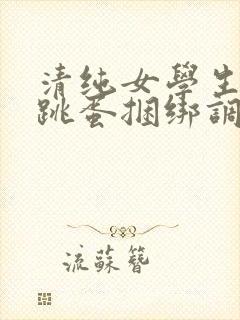 清纯女學生
跳蛋捆绑調
流蘇簪